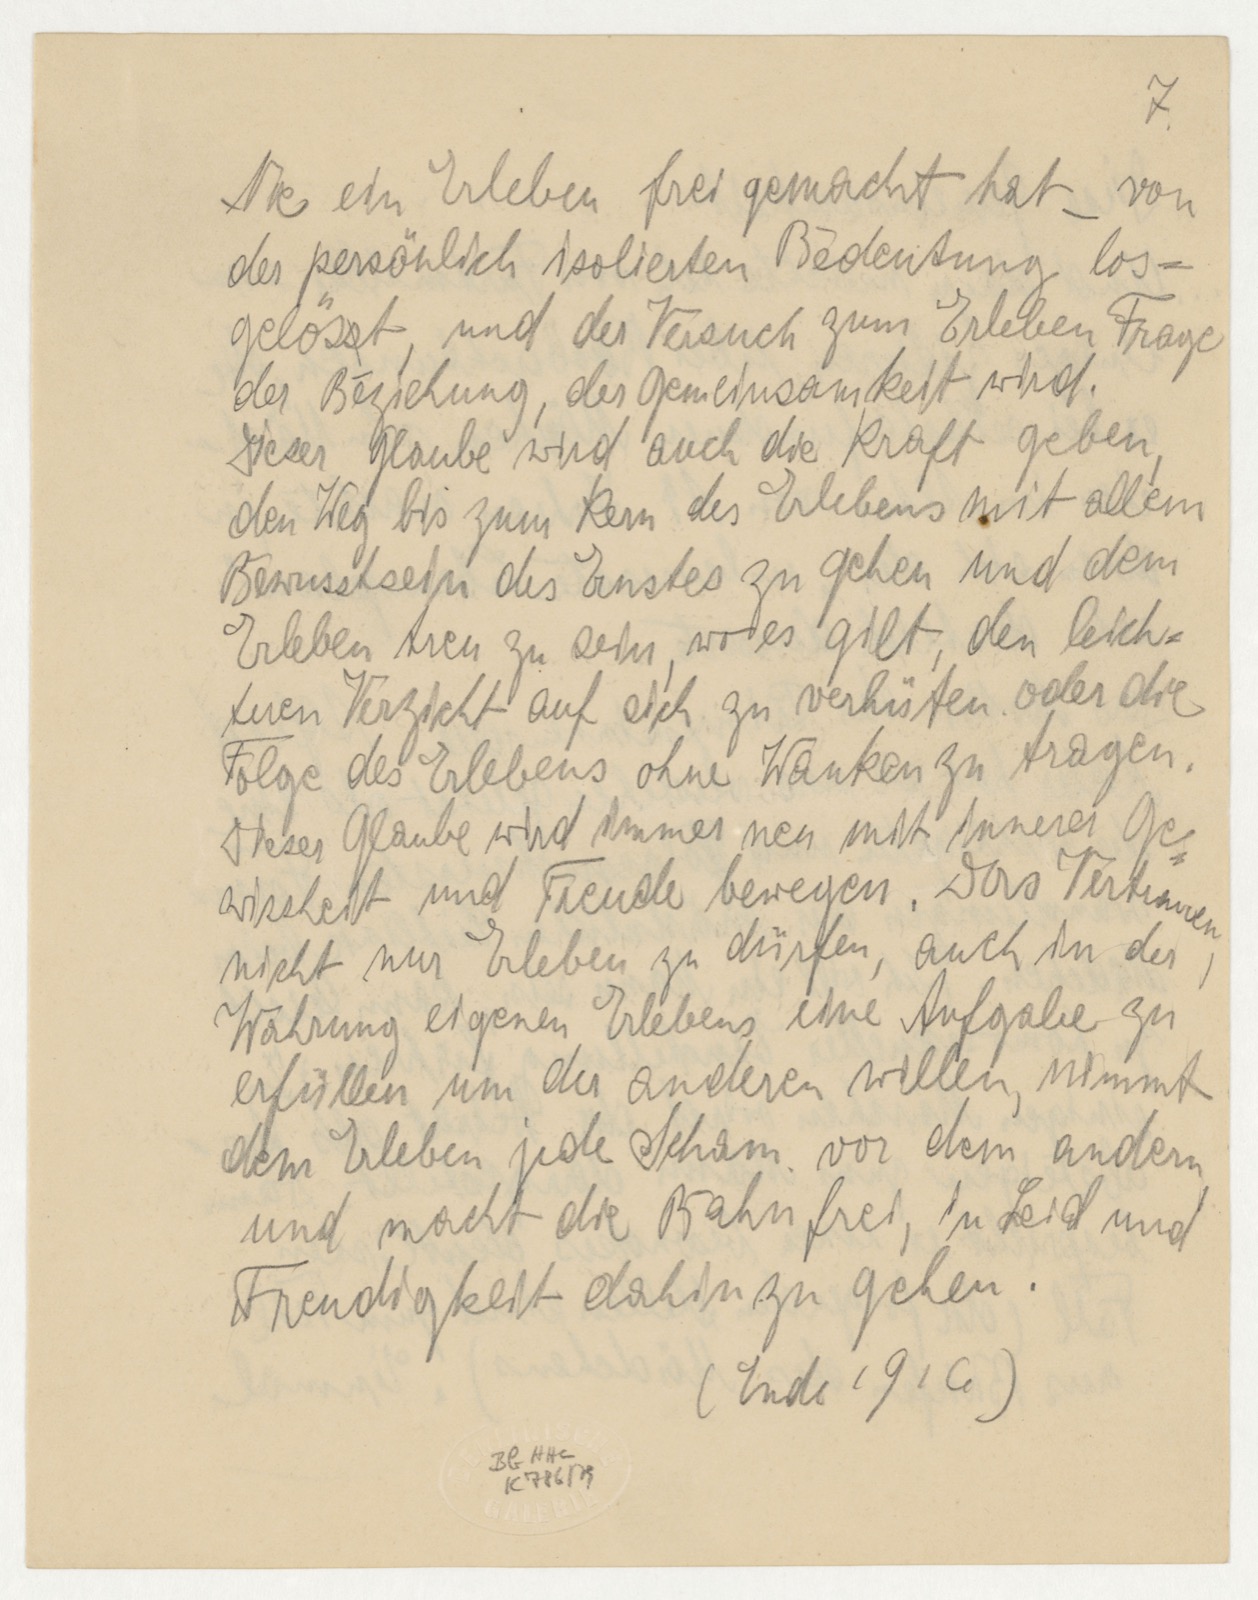 7.
die ein Erleben frei gemacht hat – von
der persönlich isolierten Bedeutung los=
gelöst, und der Versuch zum Erleben Frage
der Beziehung, der Gemeinsamkeit wird.
Dieser Glaube wird auch die Kraft geben,
den Weg bis zum Kern des Erlebens mit allem
Bewusstsein des Ernstes zu gehen und dem
Erleben treu zu sein, wo es gilt, den leich=
teren Verzicht auf sich zu verhüten oder die
Folge des Erlebens ohne Wanken zu tragen.
Dieser Glaube wird immer neu mit innerer Ge=
wissheit und Freude bewegen. Das Vertrauen,
nicht nur Erleben zu dürfen, auch in der
Wahrung eigenen Erlebens eine Aufgabe zu
erfüllen um der anderen willen, nimmt
dem Erleben jede Scham vor dem andern
und macht die Bahn frei, in Leid und
Freudigkeit dahin zu gehen.
(Ende 1916)
BG HHC
K 786/79
GALERIE